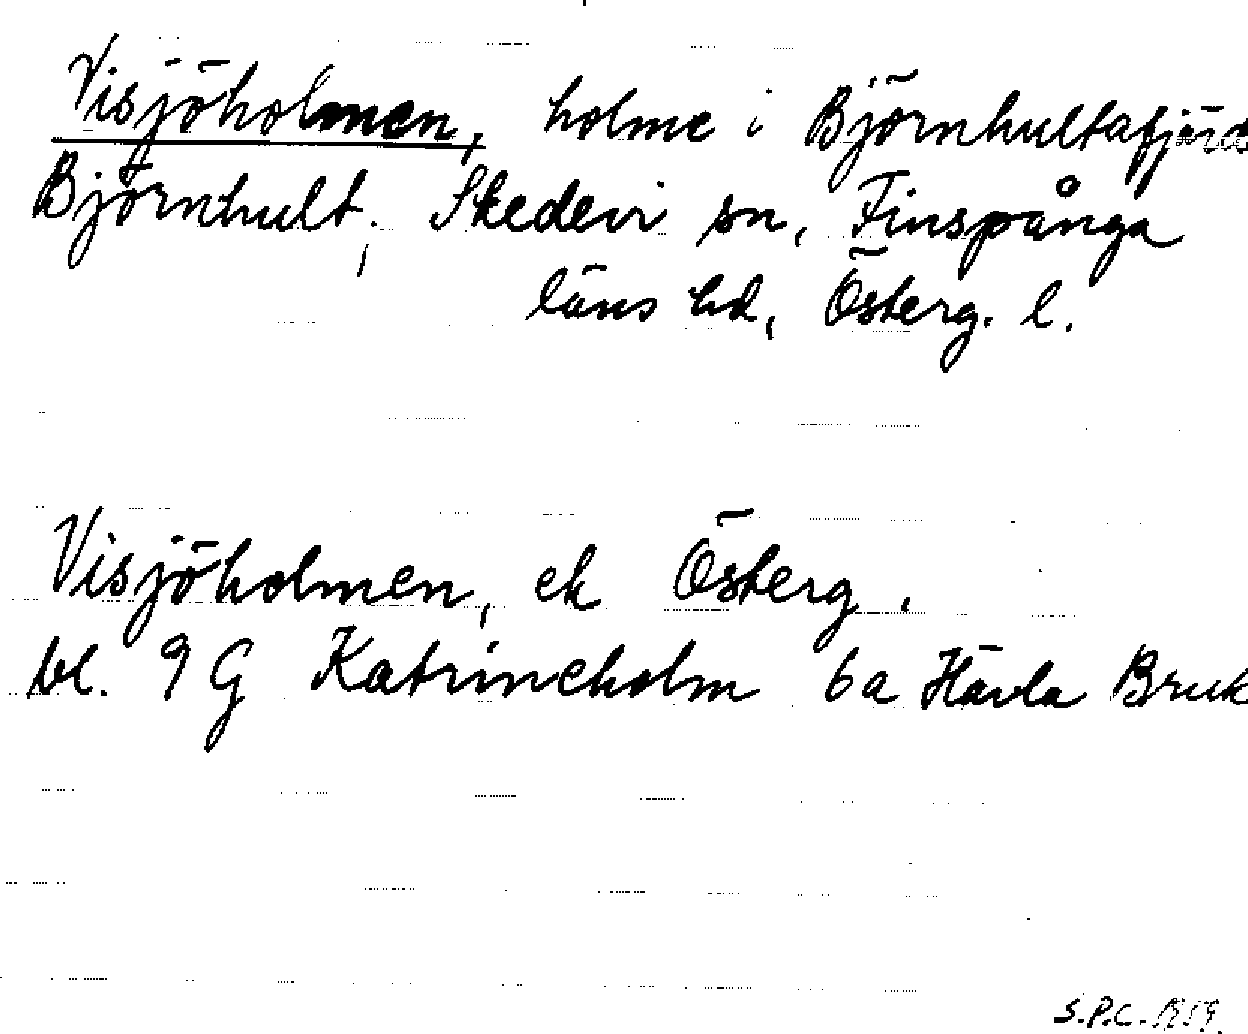 Visjöholmen, holme i Björnhultafjärd
Björnhult, Skedevi sn, Finspånga
läns hd, Österg. l.
Visjöholmen, ek Österg.
bl. 9 G Katrineholm 6a Hävla Bruk
S.P.C.